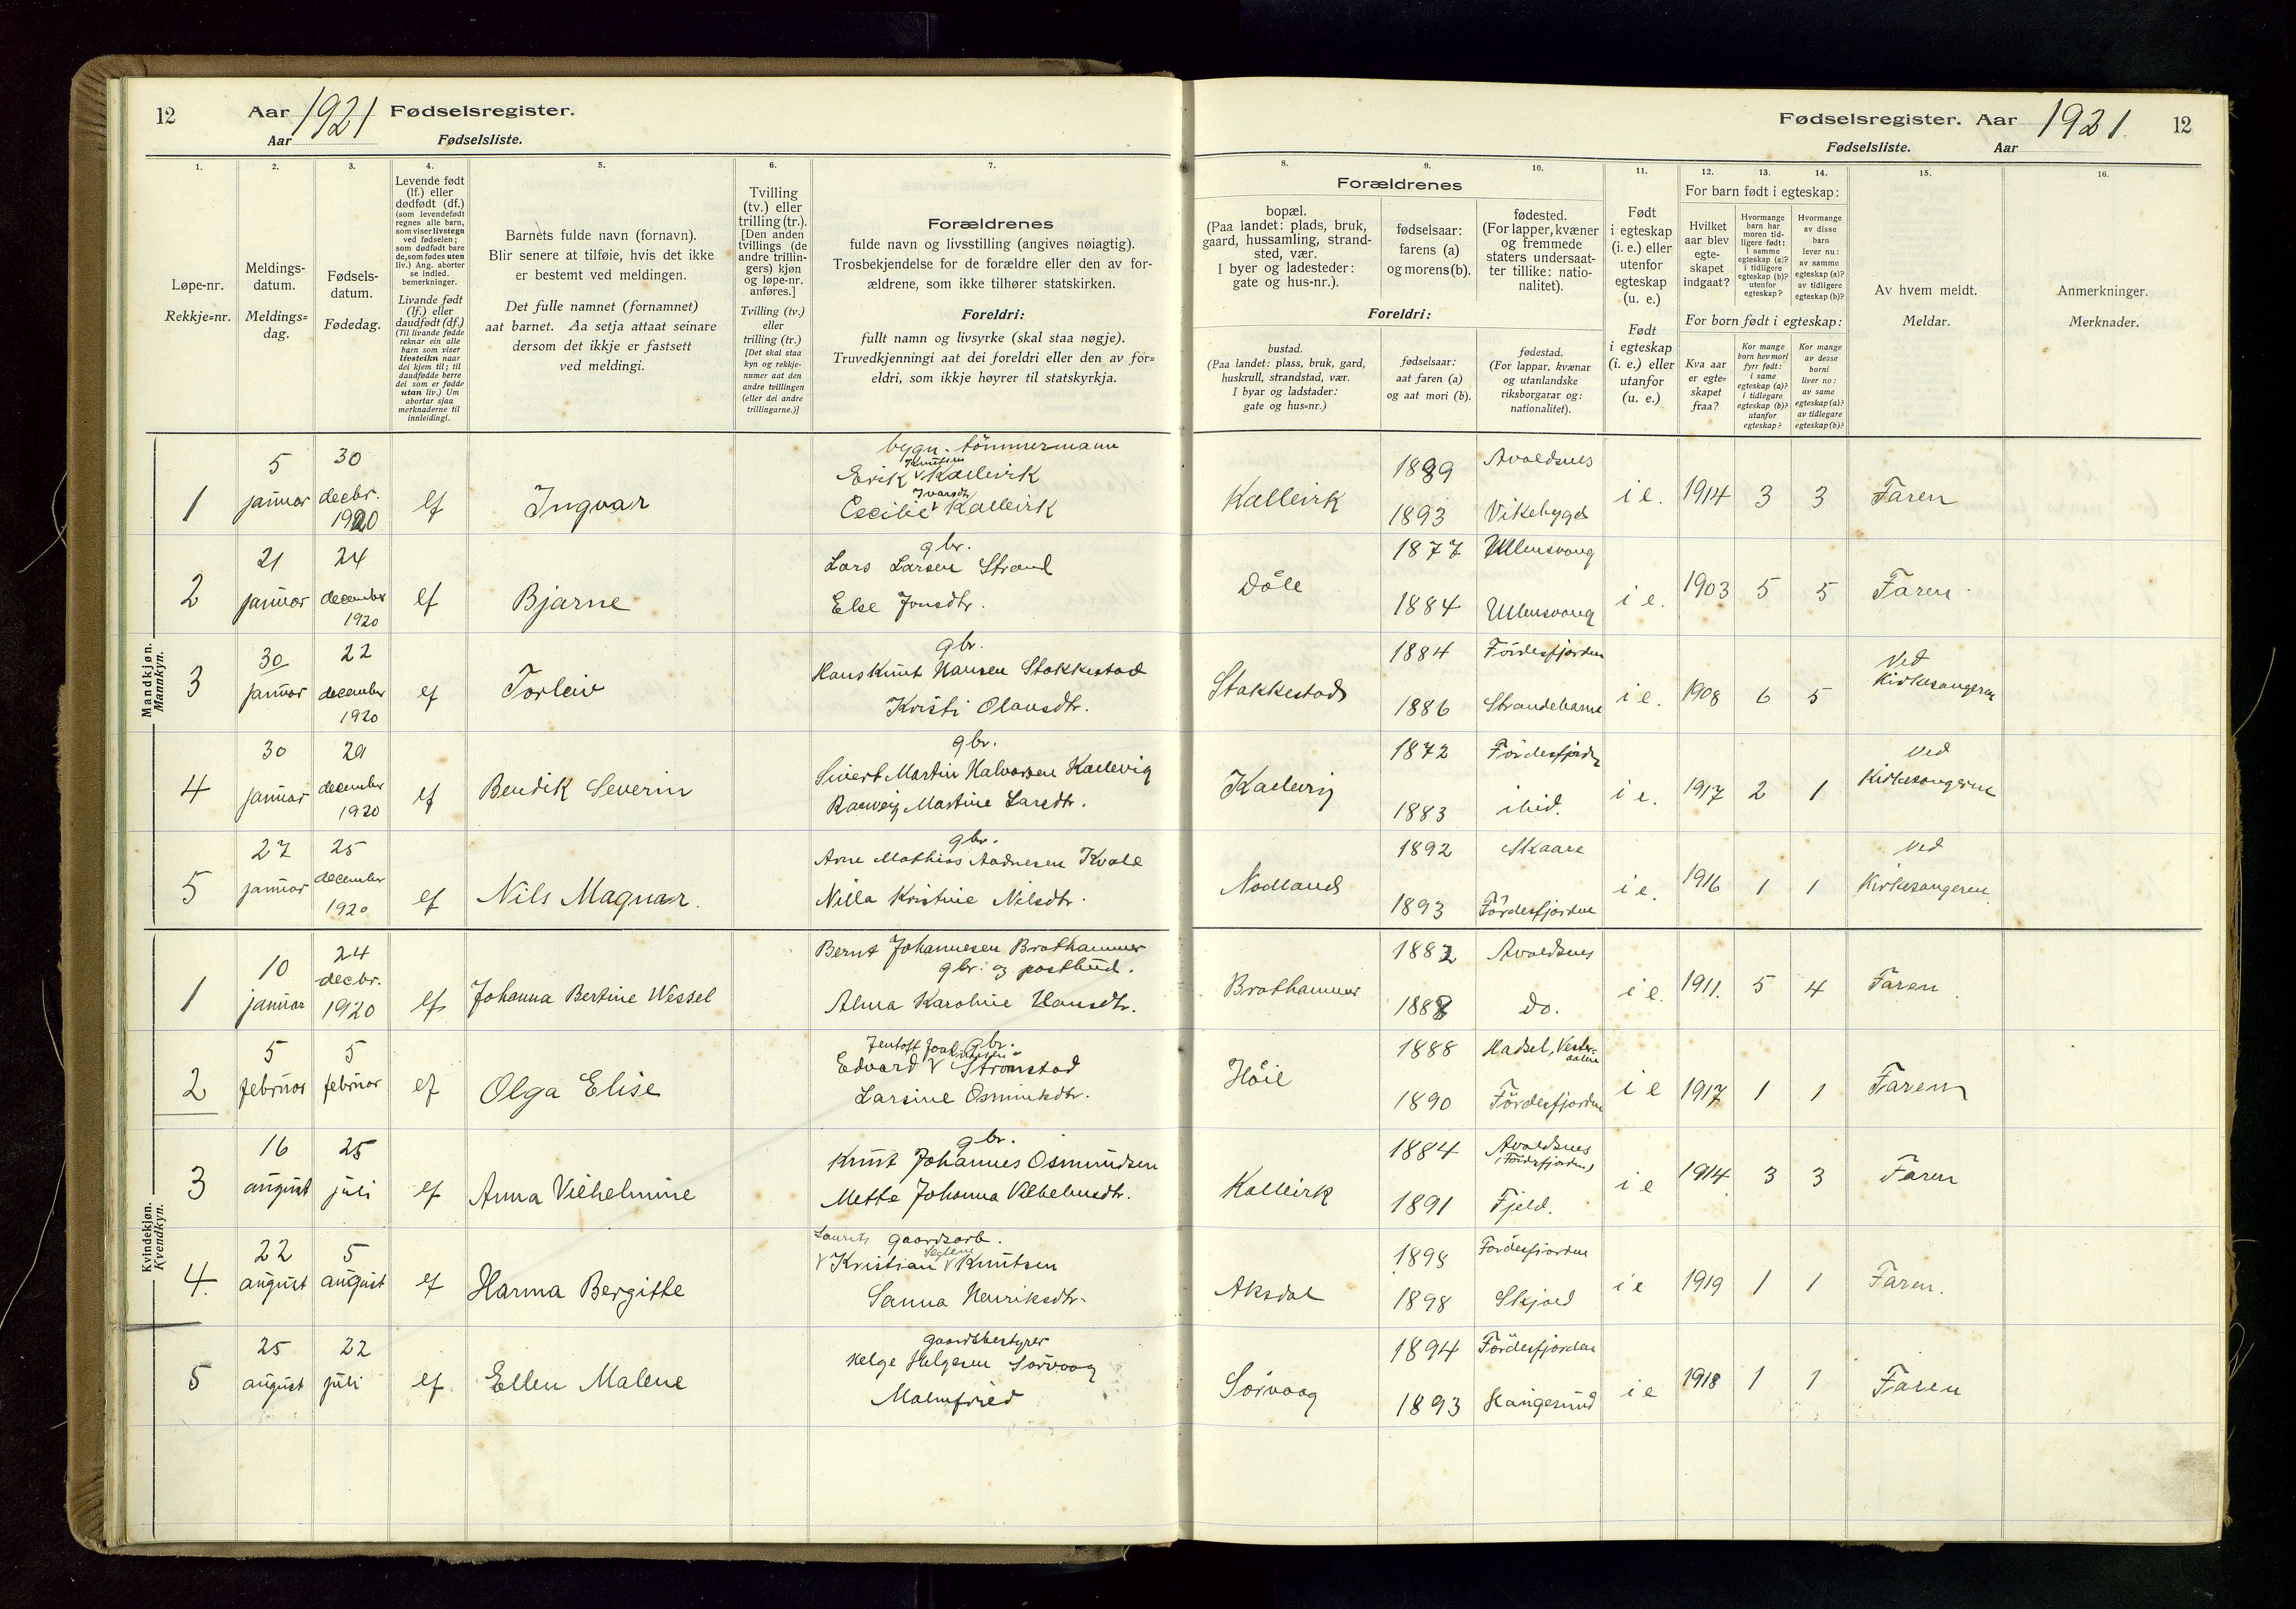 12 Aar 1921 Fødselsregister.
Aar Fødselsliste.
Fødselsregister. Aar 1921. 12
Fødselsliste. Aar
1. 2. 3. 4. 5. 6. 7.
Løpe-nr.
Rekkje=nr.
Meldings-
datum.
Meldings=
dag.
Fødsels-
datum.
Fødedag.
Levende født
(lf.) eller
dødfødt (df.)
(som levendefødt
regnes alle barn,
som viser livstegn
ved fødselen;
som dødfødt bare
de, som fødes uten
liv.) Ang. aborter
se indled.
bemerkninger.
Livande født
(lf.) eller
daudfødt (df.)
(Til livande fødde
reknar ein alle
born som viser
livsteikn naar
dei kjem til; til
daudfødde berre
dei som er fødde
utan liv.) Um
abortar sjaa
merknaderne til
innleidingi.
Barnets fulde navn (fornavn).
Blir senere at tilføie, hvis det ikke
er bestemt ved meldingen.
Det fulle namnet (fornamnet)
aat barnet. Aa setja attaat seinare
dersom det ikkje er fastsett
ved meldingi.
Tvilling
(tv.) eller
trilling (tr.).
[Den anden
tvillings (de
andre trillin-
gers) kjøn
og løpe-nr.
anføres.]
Tvilling (tv.)
eller
trilling (tr.)
[Det skal staa
kyn og rekkje-
numer aat den
andre tvillingen
(eller dei andre
trillingarne.)]
Forældrenes
fulde navn og livsstilling (angives nøiagtig).
Trosbekjendelse for de forældre eller den av for-
ældrene, som ikke tilhører statskirken.
Foreldri:
fullt namn og livsyrke (skal staa nøgje).
Truvedkjenningi aat dei foreldri eller den av for=
eldri, som ikkje høyrer til statskyrkja.
8. 9. 10. 11. 12. 13. 14. 15. 16.
Forældrenes
bopæl.
(Paa landet: plads, bruk,
gaard, hussamling, strand-
sted, vær.
I byer og ladesteder:
gate og hus-nr.).
fødselsaar:
farens (a)
og morens (b).
fødested.
(For lapper, kvæner
og fremmede
staters undersaat-
ter tillike: natio-
nalitet).
Foreldri:
bustad.
(Paa landet: plass, bruk, gard,
huskrull, strandstad, vær.
I byar og ladstader:
gate og hus=nr.)
fødselsaar:
aat faren (a)
og aat mori (b).
fødestad.
(For lappar, kvænar
og utanlandske
riksborgarar og:
nationalitet).
Født
i egteskap
(i. e.) eller
utenfor
egteskap
(u. e.)
Født
i egteskap
(i. e.) eller
utanfor
(u. e.)
For barn født i egteskap:
Hvilket
aar blev
egte-
skapet
indgaat?
Hvormange
barn har
moren tid-
ligere født:
i samme
egteskap (a)?
i tidligere
egteskap (b)?
utenfor
egteskap?
Hvormange
av disse
barn
lever nu:
av samme
egteskap (a)?
av tidligere
egteskap (b)?
For born født i egteskap:
Kva aar
er egte=
skapet
fraa?
Kor mange
born hev mori
fyrr født:
i same
egteskap (a)?
i tidlegare
egteskap (b)?
utanfor
egteskap?
Kor mange
av desse
borni
liver no:
av same
egteskap (a)?
av tidlegare
egteskap (b)?
Av hvem meldt.
Meldar.
Anmerkninger.
Merknader.
Mandkjøn.
Mannkyn.
bygn. tömmermann
1 5 januar 30 decbr. 1920 lf Ingvar
Erik Knutsen Kallevik
Cecilie Ivarsdtr Kallevik
Kallevik 1889 Avaldsnes 1893 Vikebygd i e. 1914 3 3 Faren
2 21 januar 24 december 1920 lf Bjarne
gbr.
Lars Larsen Strand
Else Jonsdtr.
Döle 1877 Ullensvang 1884 Ullensvang i e. 1903 5 5 Faren
3 30 januar 22 december 1920 lf Torleiv
gbr.
Hans Knut Hansen Stakkestad
Kristi Olausdtr.
Stakkestad 1884 Fördesfjorden 1886 Strandebarm i e. 1908 6 5 Ved Kirkesangeren
4 30 januar 29 december 1920 lf Bendik Severin
gbr.
Sivert Martin Halvorsen Kallevig
Ranveig Martine Larsdtr.
Kallevig 1872 Fördesfjorden 1883 ibid. i e. 1917 2 1 Ved Kirkesangeren
5 27 januar 25 december 1920 lf Nils Magnar.
gbr.
Arne Mathias Aadnesen Kvale
Nilla Kristine Nilsdtr.
Nodland 1892 Skaare 1893 Fördesfjorden i e. 1916 1 1 Ved Kirkesangeren
Kvindekjøn.
Kvendkyn.
1 10 januar 24 decbr. 1920 lf Johanna Bertine Wessel
Bernt Johannesen Brathammer
gbr. og postbud.
Alma Karoline Hansdtr.
Brathammer 1882 Avaldsnes 1888 do. i e. 1911. 5 4 Faren
2 5 februar 5 februar lf Olga Elise
gbr.
Edvard Strömstad
Larsine Osmundsdtr.
Höie 1888 Hadsel, Vesteraalen 1890 Fördesfjorden i e 1917 1 1 Faren
3 16 august 25 juli lf Anna Vilhelmine
gbr.
Knut Johannes Osmundsen
Mette Johanna Vilhelmsdtr.
Kallevik 1884 Avaldsnes (Fördesfjorden) 1891 Fjeld. i e 1914 3 3 Faren
4. 22 august 5 august lf Hanna Bergitte
Laurits gaardsarb.
Kristian Knutsen
Sanna Henriksdtr.
Aksdal 1898 Fördesfjorden 1898 Skjold i e 1919 1 1 Faren.
5 25 august 22 juli lf. Ellen Malene
gaardsbestyrer
Helge Helgesen Sörvaag
Malmfrid
Sörvaag 1894 Fördesfjorden 1893 Haugesund i e 1918 1 1 Faren